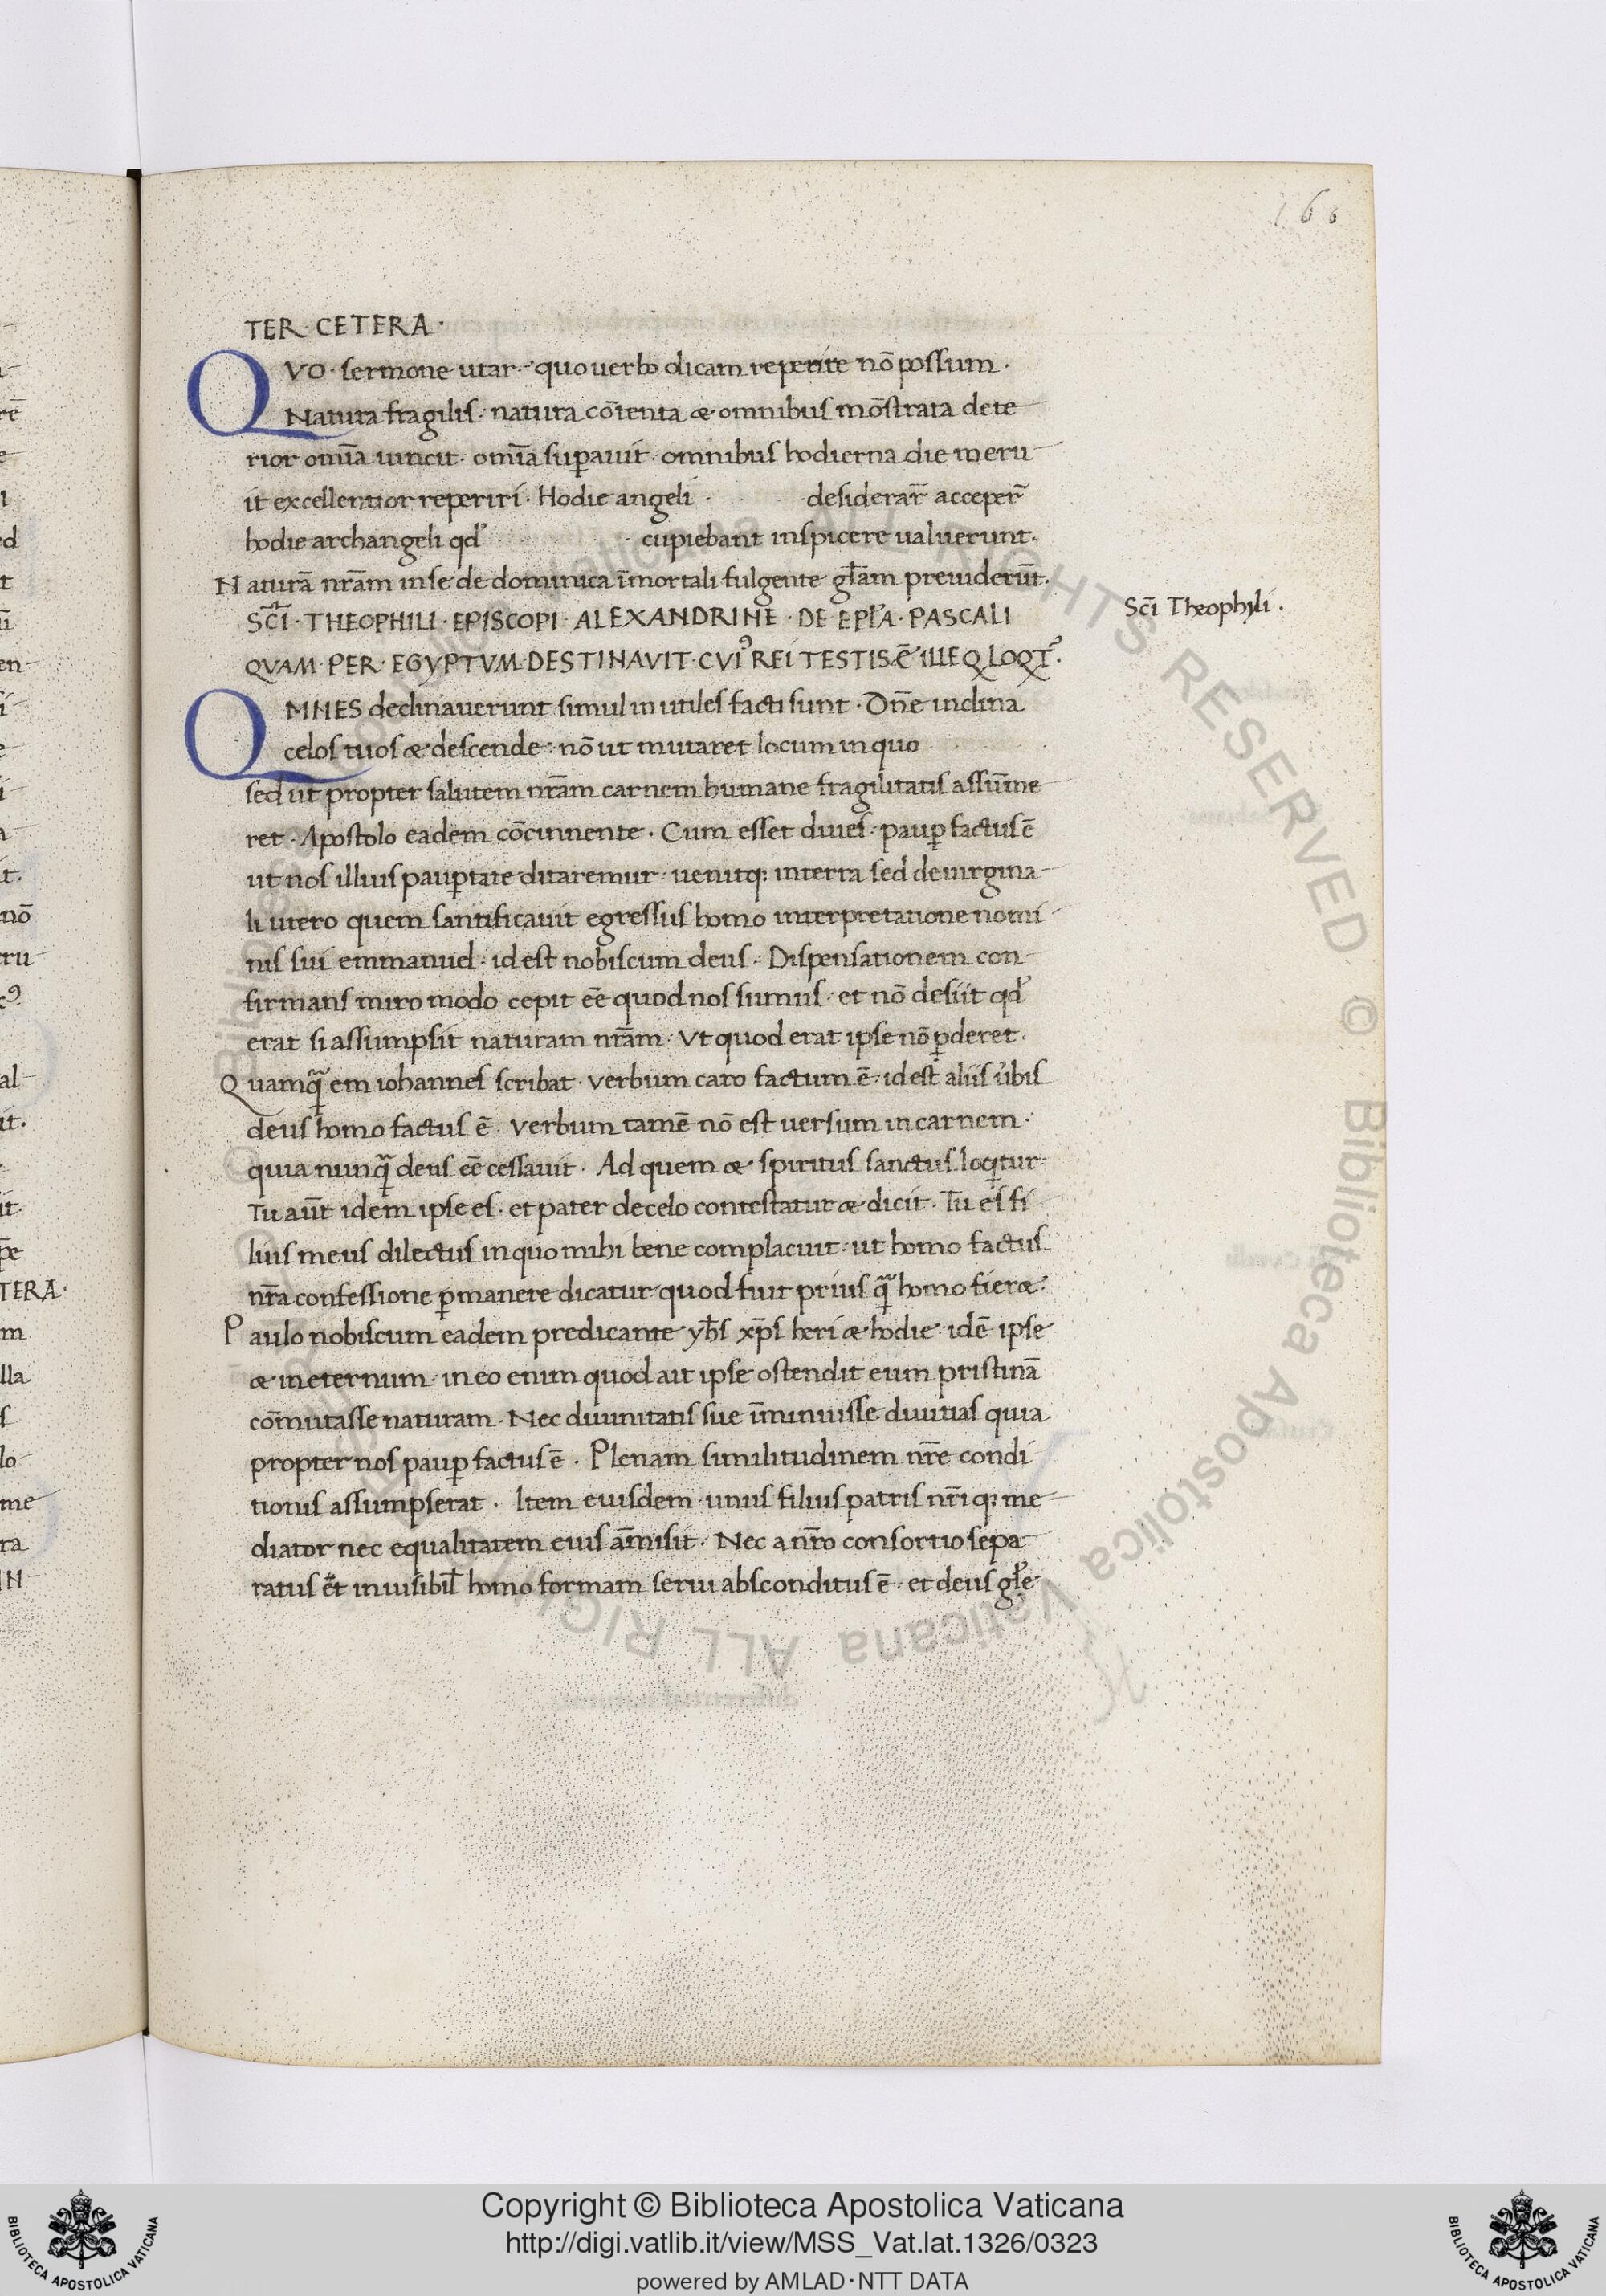 166
TER CETERA·
QVO· sermone utar· quo uerbo dicam reperire nō possum·
Natura fragilis· natura cōtenta & omnibus mōstrata dete
rior om̄ia uincit· om̄ia suꝑauit· omnibus hodierna die meru
it excellentior reperiri· Hodie angeli · desiderar̄ acceper̄
hodie archangeli qd' cupiebant inspicere ualuerunt·
Naturā nr̄am in se de dominica īmortali fulgente gl̄am preuiderūt·
SC̄I· THEOPHILI· EPISCOPI· ALEXANDRINE· DE EPĪ'A· PASCALI
Sc̄i Theophyli·
QVAM· PER· EGYPTVM· DESTINAVIT· CVI⁹ REI TESTIS Ē ILLE Q LOQT᷑·
QMNES declinauerunt simul inutiles facti sunt· Dn̄e inclina
celos tuos & descende· nō ut mutaret locum in quo
sed ut propter salutem nr̄am carnem humane fragilitatis assūme
ret· Apostolo eadem cōcinnente· Cum esset diues· pauꝑ factus ē
ut nos illius pauꝑtate ditaremur· uenitq; in terra sed de uirgina
li utero quem santificauit egressus homo interpretatione nomi
nis sui emmanuel· id est nobiscum deus· Dispensationem con
firmans miro modo cepit eē quod nos sumus· et nō desiit qd'
erat si assumpsit naturam nr̄am· Vt quod erat ipse nō ꝑderet·
Quamq̄ em iohannes scribat· verbum caro factum ē· id est aliis u̓bis
deus homo factus ē· Verbum tamē nō est uersum in carnem·
quia nunq̄ deus eē cessauit· Ad quem & spiritus sanctus loqitur·
Tu aūt idem ipse es· et pater de celo contestatur & dicit· Tu es fi
lius meus dilectus in quo mihi bene complacuit· ut homo factus
nr̄a confessione ꝑmanere dicatur quod fuit prius q̄ homo fier&·
Paulo nobiscum eadem predicante yh̄s xp̄s heri & hodie· idē ipse
& in eternum· in eo enim quod ait ipse ostendit eum pristinā
cōmutasse naturam· Nec diuinitatis sue īminuisse diuitias quia
propter nos pauꝑ factus ē· Plenam similitudinem nr̄e condi
tionis assumpserat· Item eiusdem· unus filius patris nr̄iq; me
diator nec equalitatem eius am̄isit· Nec a nr̄o consortio sepa
ratus ēt inuisibil̄ homo formam serui absconditus ē· et deus gl'e
Copyright © Biblioteca Apostolica Vaticana
http://digi.vatlib.it/view/MSS_Vat.lat.1326/0323
powered by AMLAD·NTT DATA
BIBLIOTECA APOSTOLICA VATICANA
BIBLIOTECA APOSTOLICA VATICANA